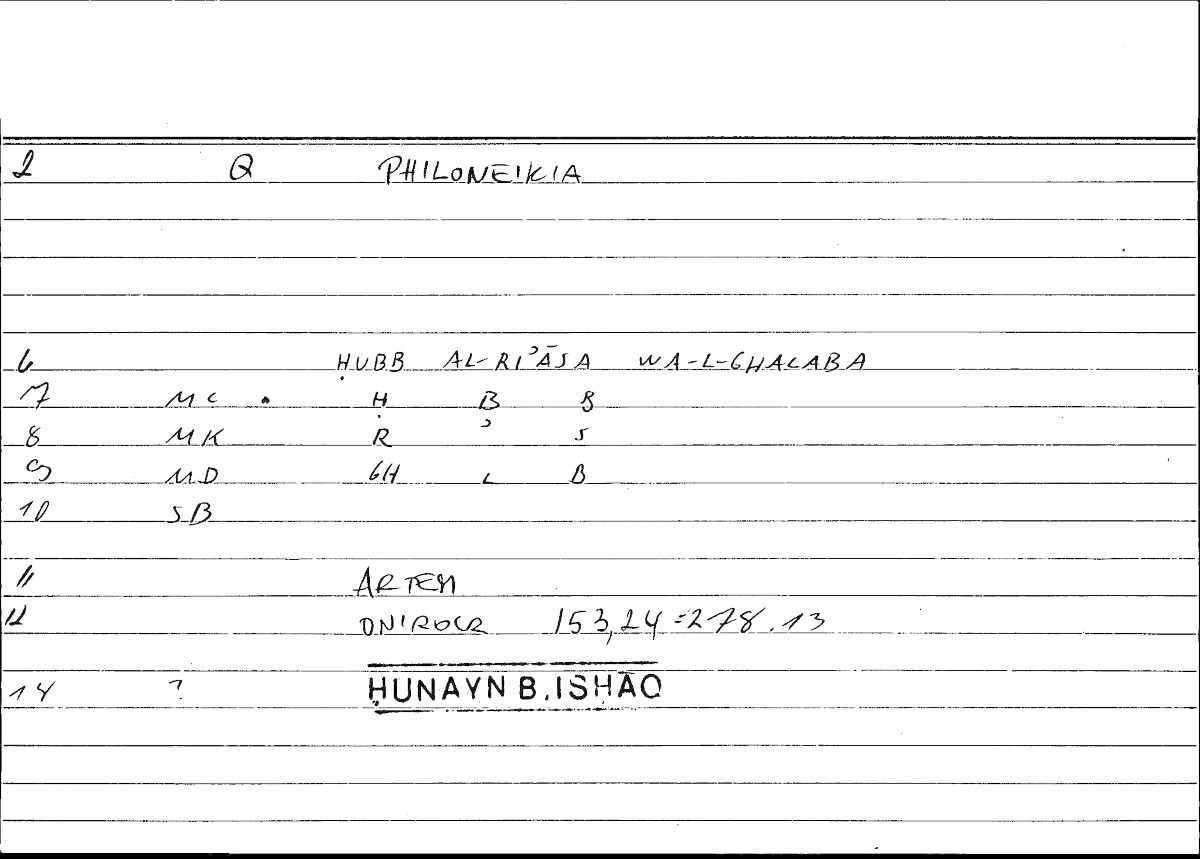 2 Q PHILONEIKIA
6 ḤUBB AL-RIʾĀSA WA-L-GHALABA
7 MC . Ḥ B B
8 MK R ʾ S
9 MD GH L B
10 SB
11 ARTEM
12 ONIROCR 153,24=278.13
14 ? ḤUNAYN B. ISḤĀQ